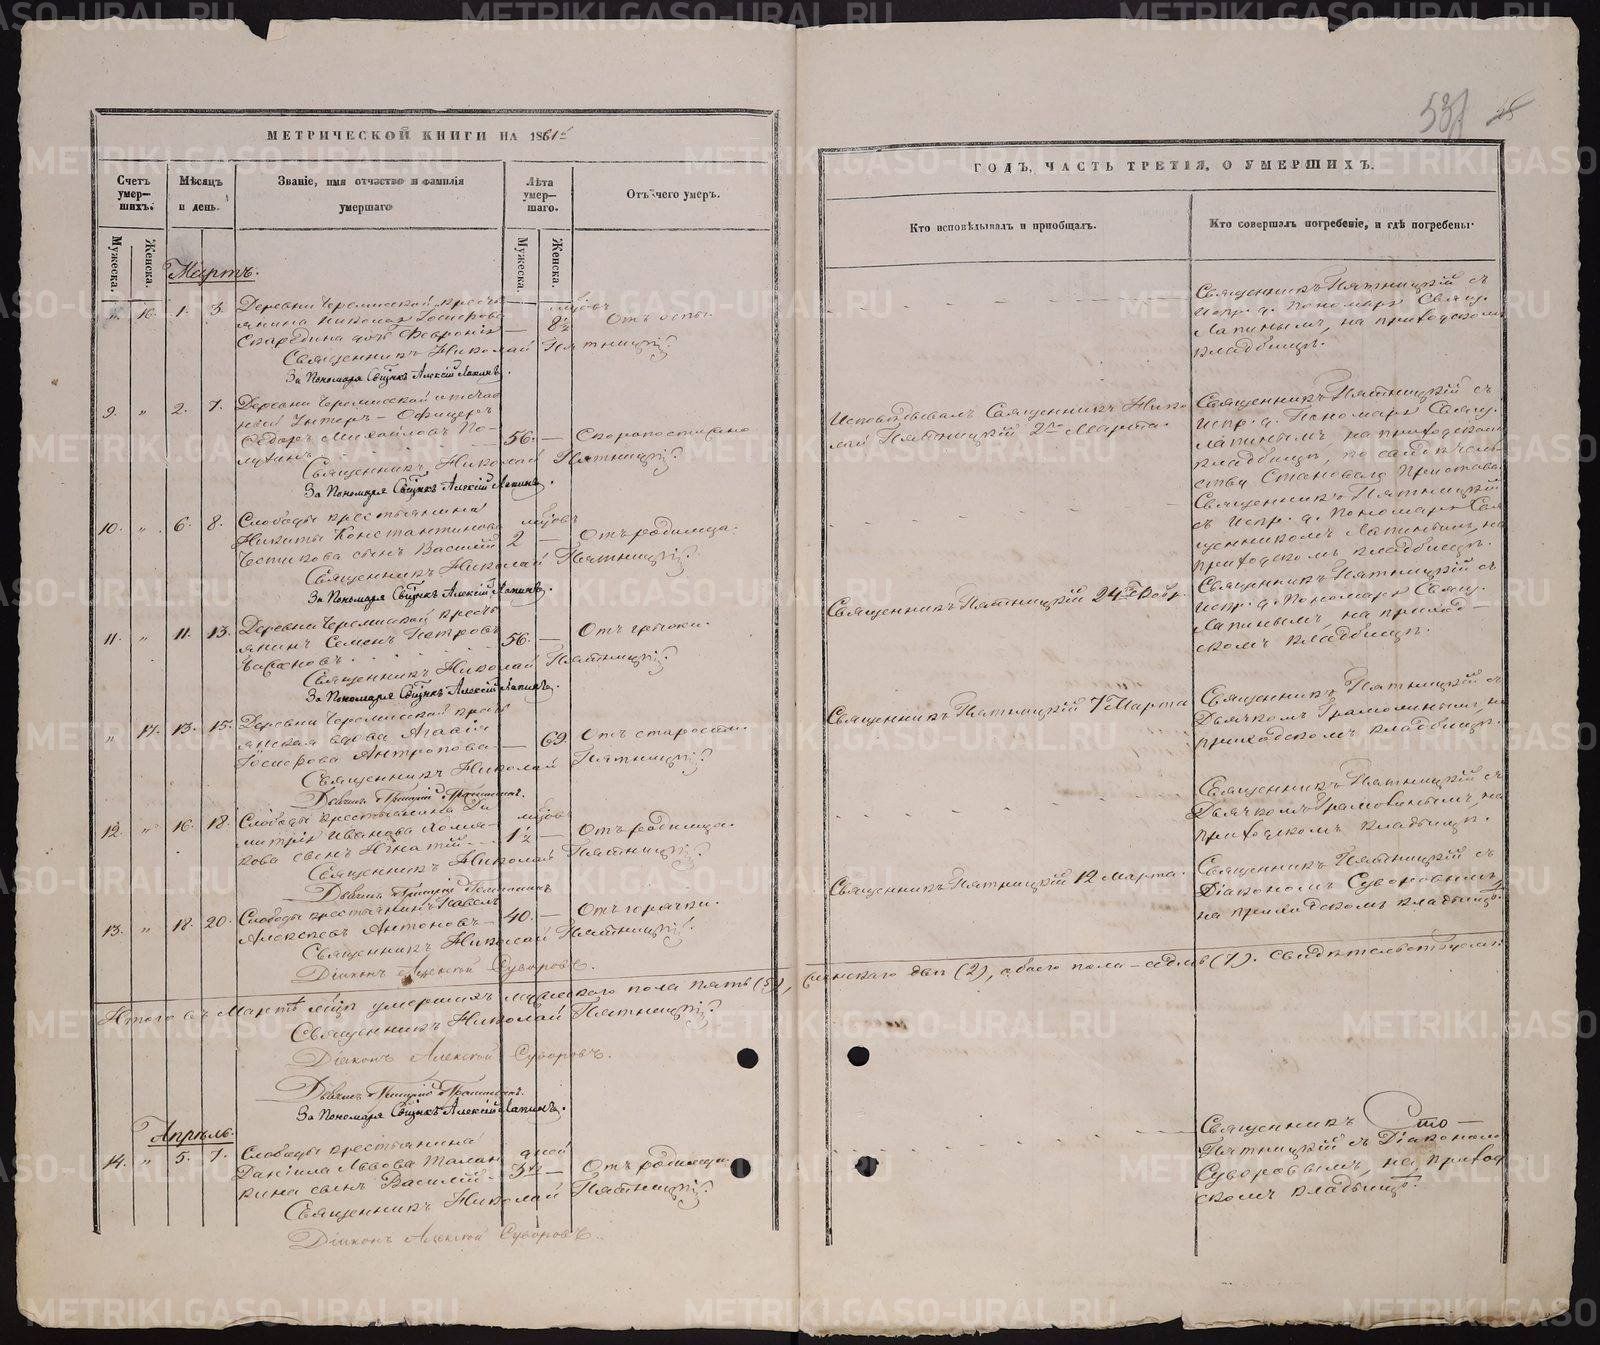 METRIKI.GASO-URAL.RU
МЕТРИЧЕСКОЙ КНИГИ НА 1861й
Счетъ умер-шихъ.
Мѣсяцъ и день.
Званіе, имя отчество и фамилія умершаго
Лѣта умер-шаго.
Отъ чего умеръ.
Мужеска. Женска.
Мужеска. Женска.
Мартъ.
„ 16. 1. 3. Деревни Черемисской кресть
янина Николая
дочь Феврония — 8½ Отъ оспы.
Священникъ Николай Пятницкій
За Пономаря Свщнкъ Алексій Лапинъ.
9. „ 2. 7. Деревни Черемисской отстав
ной Унтеръ-Офицеръ
Сидоръ Михайловъ По- 56. — Скоропостижно
Священникъ Николай Пятницкій
За Пономаря Свщнкъ Алексій Лапинъ.
10. „ 6. 8. Слободы крестьянина
Никиты Константинова
сынъ Василій 2 — Отъ родимца.
Священникъ Николай Пятницкій
За Пономаря Свщнкъ Алексій Лапинъ.
11. „ 11. 13. Деревни Черемисской кресть
янинъ Семенъ Петровъ 56. — Отъ
Священникъ Николай Пятницкій
За Пономаря Свщнкъ Алексій Лапинъ.
„ 17. 13. 15. Деревни Черемисской кресть
янская вдова Агафія
Антропова — 69 Отъ старости.
Священникъ Николай Пятницкій
12. „ 16. 18. Слободы крестьянина Ди
митрія Иванова
сынъ Игнатій 1½ — Отъ родимца.
Священникъ Николай Пятницкій
13. „ 18. 20. Слободы крестьянинъ Павелъ
Алексѣевъ Антоновъ — 40. — Отъ горячки.
Священникъ Николай Пятницкій
Діаконъ Алексѣй Суворовъ.
Итого въ Мартѣ мцѣ умершихъ мужескаго пола пять (5),
Священникъ Николай Пятницкій
Діаконъ Алексѣй Суворовъ.
За Пономаря Свщнкъ Алексій Лапинъ.
Апрѣль.
14. „ 5. 7. Слободы крестьянина дней
Даніила Львова
сынъ Василій 3 — Отъ родимца
Священникъ Николай Пятницкій
Діаконъ Алексѣй Суворовъ.
531
ГОДЪ, ЧАСТЬ ТРЕТІЯ, О УМЕРШИХЪ.
Кто исповѣдывалъ и пріобщалъ.
Кто совершалъ погребеніе, и гдѣ погребены.
Священникъ Пятницкій съ
испр. д. Пономаря Свящ.
Лапинымъ, на приходскомъ
кладбищѣ.
Исповѣдывалъ Священникъ Нико
лай Пятницкій 2го Марта.
Священникъ Пятницкій съ
испр. д. Пономаря Свящ.
Лапинымъ, на приходскомъ
кладбищѣ, по свидѣтель
ству Становаго Пристава.
Священникъ Пятницкій
съ испр. д. Пономаря Свя
щенникомъ Лапинымъ, на
приходскомъ кладбищѣ.
Священникъ Пятницкій 24го Февр.
Священникъ Пятницкій съ
испр. д. Пономаря Свящ.
Лапинымъ, на приход-
скомъ кладбищѣ.
Священникъ Пятницкій 7 Марта
Священникъ Пятницкій съ
Дьячкомъ Грамолинымъ, на
приходскомъ кладбищѣ.
Священникъ Пятницкій съ
Дьячкомъ Грамолинымъ, на
приходскомъ кладбищѣ.
Священникъ Пятницкій 12 Марта.
Священникъ Пятницкій съ
Діакономъ Суворовымъ,
на приходскомъ кладбищѣ.
женскаго двѣ (2), обоего пола — седмь (7). Свидѣтельствуемъ:
Священникъ
Пятницкій съ Діакономъ
Суворовымъ, на приход
скомъ кладбищѣ.